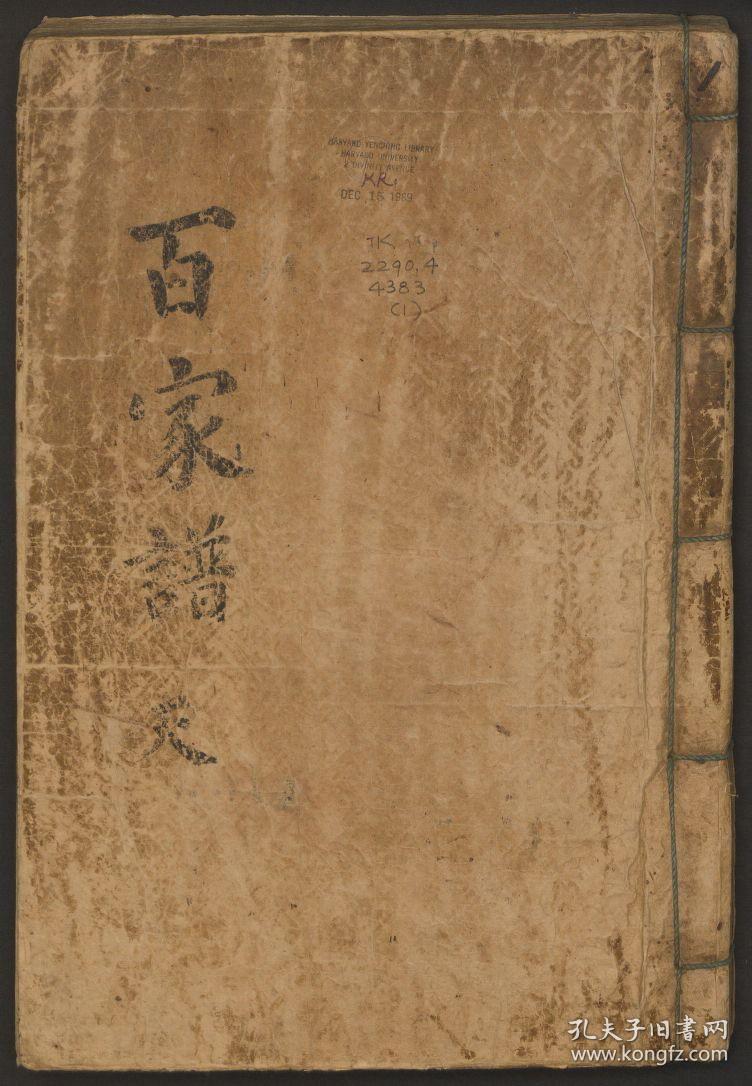 百家譜 天
HARVARD YENCHING LIBRARY
HARVARD UNIVERSITY
2 DIVINITY AVENUE
KR
DEC 15 1969
TK
2290.4
4383
(1)
1
孔夫子旧书网
www.kongfz.com